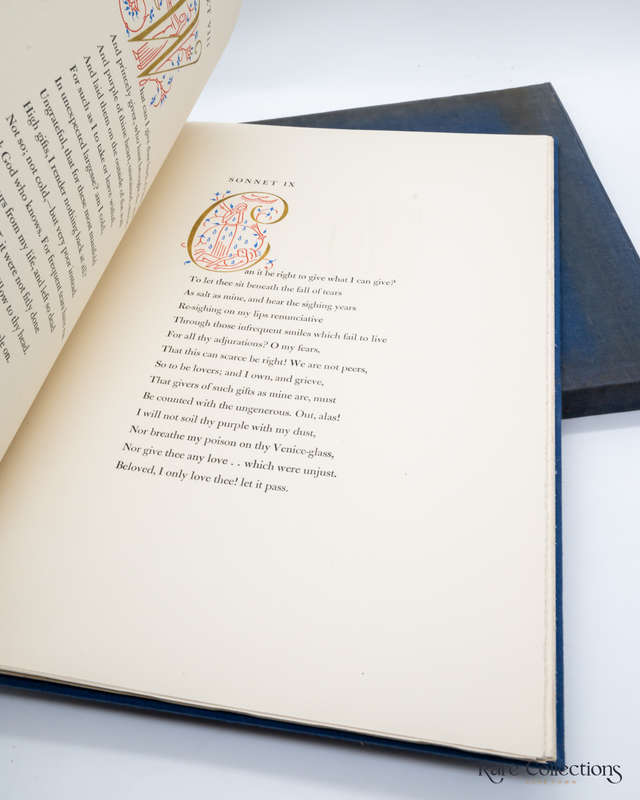 VIII
What can I give thee back,
And princely giver, who hast
And purple of thine heart,
And laid them on the outside of the
For such as I to take or leave withal,
In unexpected largesse? am I cold,
Ungrateful, that for these most manifold
High gifts, I render nothing back at all?
Not so; not cold,—but very poor instead.
God who knows. For frequent tears have
from my life, and left so dead
it were not fitly done
to thy head.
on.
SONNET IX
Can it be right to give what I can give?
To let thee sit beneath the fall of tears
As salt as mine, and hear the sighing years
Re-sighing on my lips renunciative
Through those infrequent smiles which fail to live
For all thy adjurations? O my fears,
That this can scarce be right! We are not peers,
So to be lovers; and I own, and grieve,
That givers of such gifts as mine are, must
Be counted with the ungenerous. Out, alas!
I will not soil thy purple with my dust,
Nor breathe my poison on thy Venice-glass,
Nor give thee any love . . which were unjust.
Beloved, I only love thee! let it pass.
Rare Collections